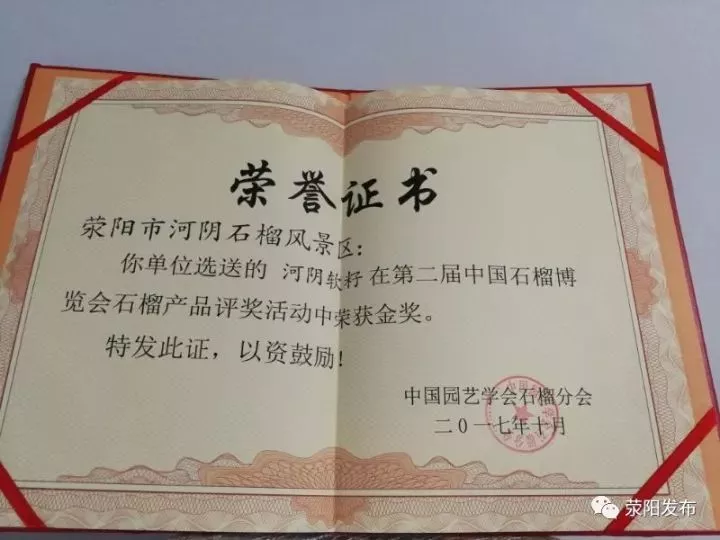 荣誉证书
荥阳市河阴石榴风景区：
你单位选送的 河阴软籽 在第二届中国石榴博
览会石榴产品评奖活动中荣获金奖。
特发此证，以资鼓励！
中国园艺学会石榴分会
二〇一七年十月
荥阳发布